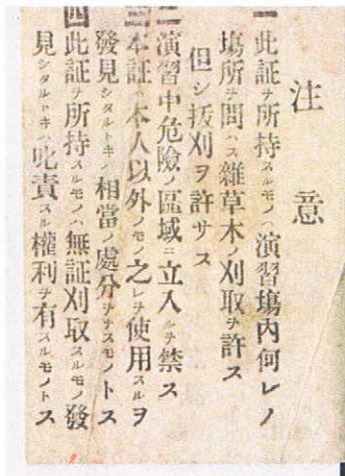 注意
一此証ヲ所持スルモノハ演習塲内何レノ
塲所ヲ問ハス雑草木ノ刈取ヲ許ス
但シ抜刈ヲ許サス
二演習中危險ノ區域ニ立入ルヲ禁ス
三本証ハ本人以外ノモノ之レヲ使用スルヲ
發見シタルトキハ相當ノ處分ヲナスモノトス
四此証ヲ所持スルモノハ無証刈取スルモノ發
見シタルトキハ叱責スル權利ヲ有スルモノトス